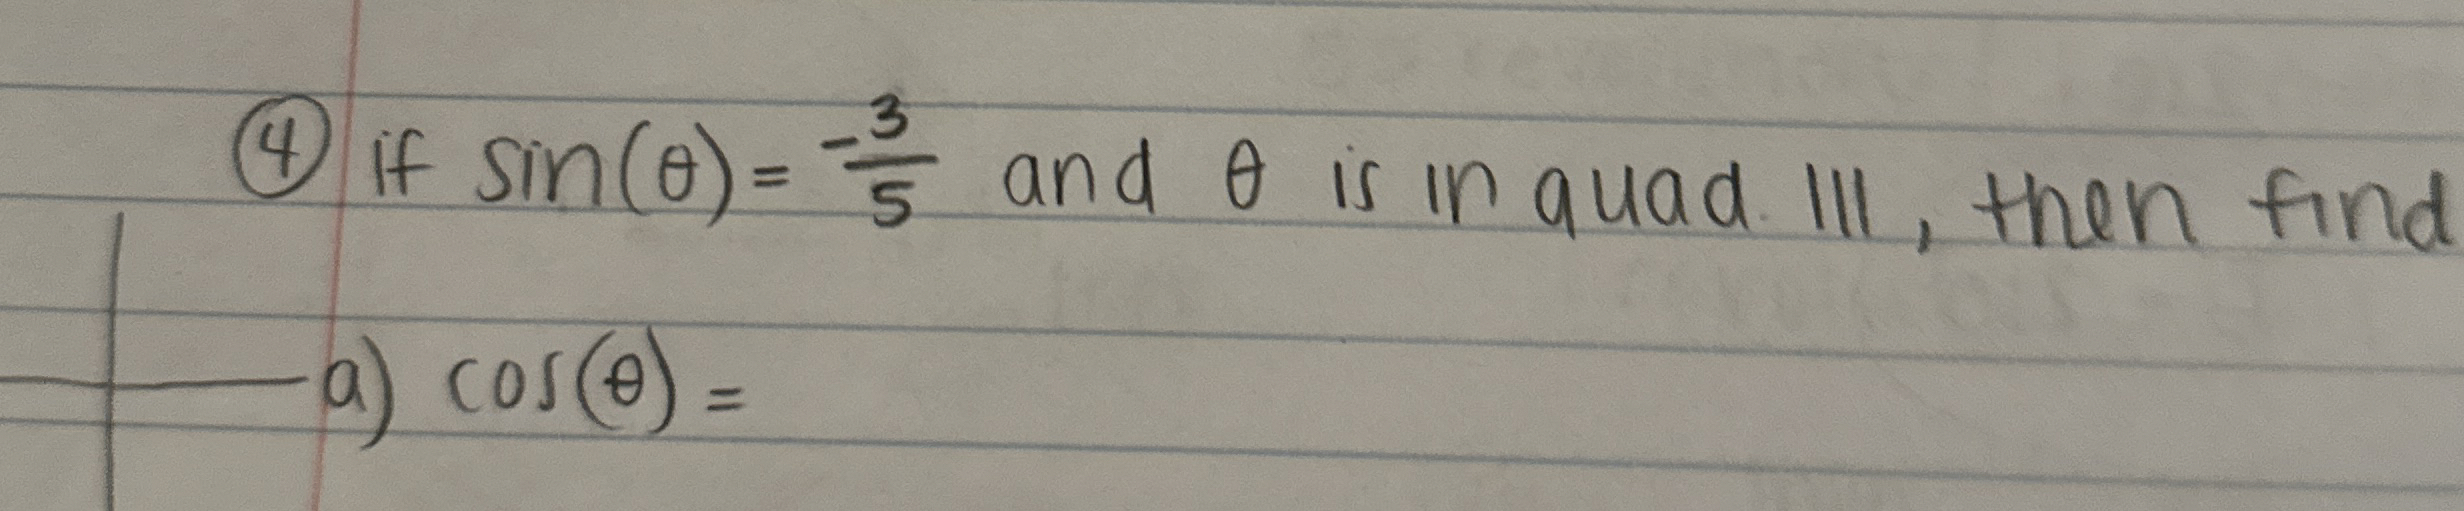 ④ if sin(θ) = -3/5 and θ is in quad. III, then find
a) cos(θ) =